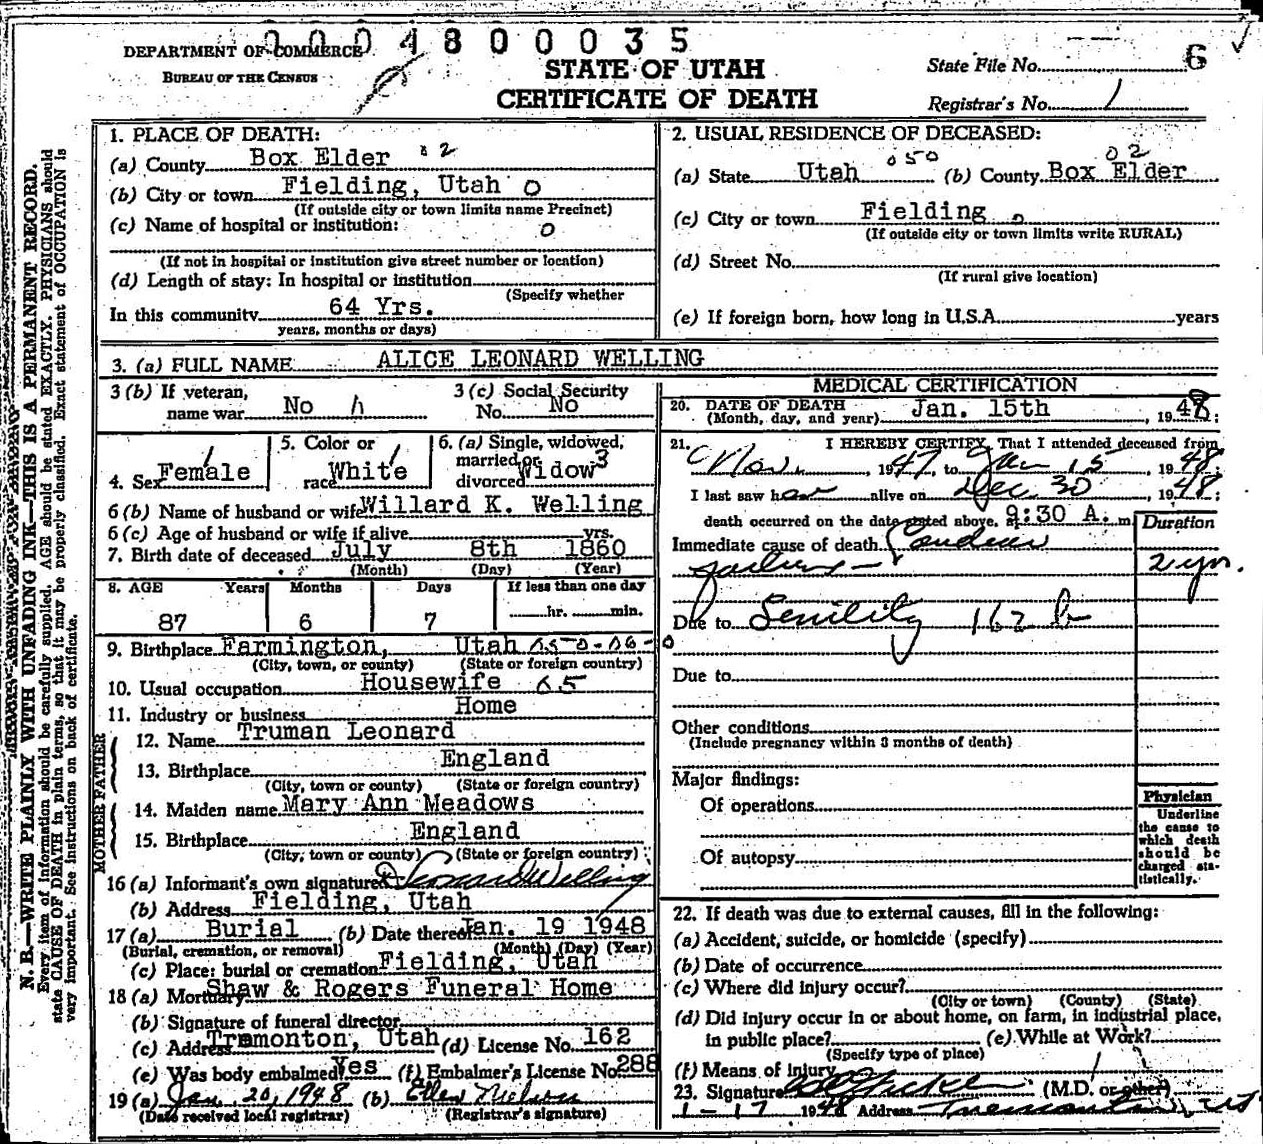 0004800035
DEPARTMENT OF COMMERCE
BUREAU OF THE CENSUS
STATE OF UTAH
CERTIFICATE OF DEATH
State File No. 6
Registrar's No. 1
N. B.—WRITE PLAINLY WITH UNFADING INK—THIS IS A PERMANENT RECORD.
Every item of information should be carefully supplied. AGE should be stated EXACTLY. PHYSICIANS should
state CAUSE OF DEATH in plain terms, so that it may be properly classified. Exact statement of OCCUPATION is
very important. See instructions on back of certificate.
1. PLACE OF DEATH:
(a) County Box Elder 02
(b) City or town Fielding, Utah 0
(If outside city or town limits name Precinct)
(c) Name of hospital or institution: 0
(If not in hospital or institution give street number or location)
(d) Length of stay: In hospital or institution
(Specify whether
In this community 64 Yrs.
years, months or days)
2. USUAL RESIDENCE OF DECEASED:
(a) State Utah 050 (b) County Box Elder 02
(c) City or town Fielding 0
(If outside city or town limits write RURAL)
(d) Street No.
(If rural give location)
(e) If foreign born, how long in U.S.A. years
3. (a) FULL NAME ALICE LEONARD WELLING
3 (b) If veteran, name war No
3 (c) Social Security No. No
4. Sex Female 1
5. Color or race White 1
6. (a) Single, widowed, married or divorced Widow 3
6 (b) Name of husband or wife Willard K. Welling
6 (c) Age of husband or wife if alive yrs.
7. Birth date of deceased July 8th 1860
(Month) (Day) (Year)
8. AGE Years Months Days If less than one day
87 6 7 hr. min.
9. Birthplace Farmington, Utah
(City, town, or county) (State or foreign country)
10. Usual occupation Housewife 65
11. Industry or business Home
FATHER
12. Name Truman Leonard
13. Birthplace England
(City, town, or county) (State or foreign country)
MOTHER
14. Maiden name Mary Ann Meadows
15. Birthplace England
(City, town or county) (State or foreign country)
16 (a) Informant's own signature Leonard Welling
(b) Address Fielding, Utah
17 (a) Burial (b) Date thereof Jan. 19 1948
(Burial, cremation, or removal) (Month) (Day) (Year)
(c) Place: burial or cremation Fielding, Utah
18 (a) Mortuary Shaw & Rogers Funeral Home
(b) Signature of funeral director
(c) Address Tremonton, Utah (d) License No. 162
(e) Was body embalmed Yes (f) Embalmer's License No. 288
19 (a) Jan. 20, 1948 (b)
(Date received local registrar) (Registrar's signature)
MEDICAL CERTIFICATION
20. DATE OF DEATH
(Month, day, and year) Jan. 15th, 1948;
21. I HEREBY CERTIFY, That I attended deceased from
Nov., 1947, to Jan 15, 1948
I last saw her alive on Dec 30, 1948;
death occurred on the date stated above, at 9:30 A. m.
Duration
Immediate cause of death Cardiac
failure — 2 yr.
Due to Senility 162 b
Due to
Other conditions
(Include pregnancy within 3 months of death)
Major findings:
Of operations
Of autopsy
Physician
Underline
the cause to
which death
should be
charged sta-
tistically.
22. If death was due to external causes, fill in the following:
(a) Accident, suicide, or homicide (specify)
(b) Date of occurrence
(c) Where did injury occur?
(City or town) (County) (State)
(d) Did injury occur in or about home, on farm, in industrial place,
in public place? (e) While at Work?
(Specify type of place)
(f) Means of injury
23. Signature (M.D. or other)
1-17 1948 Address Tremonton, Ut